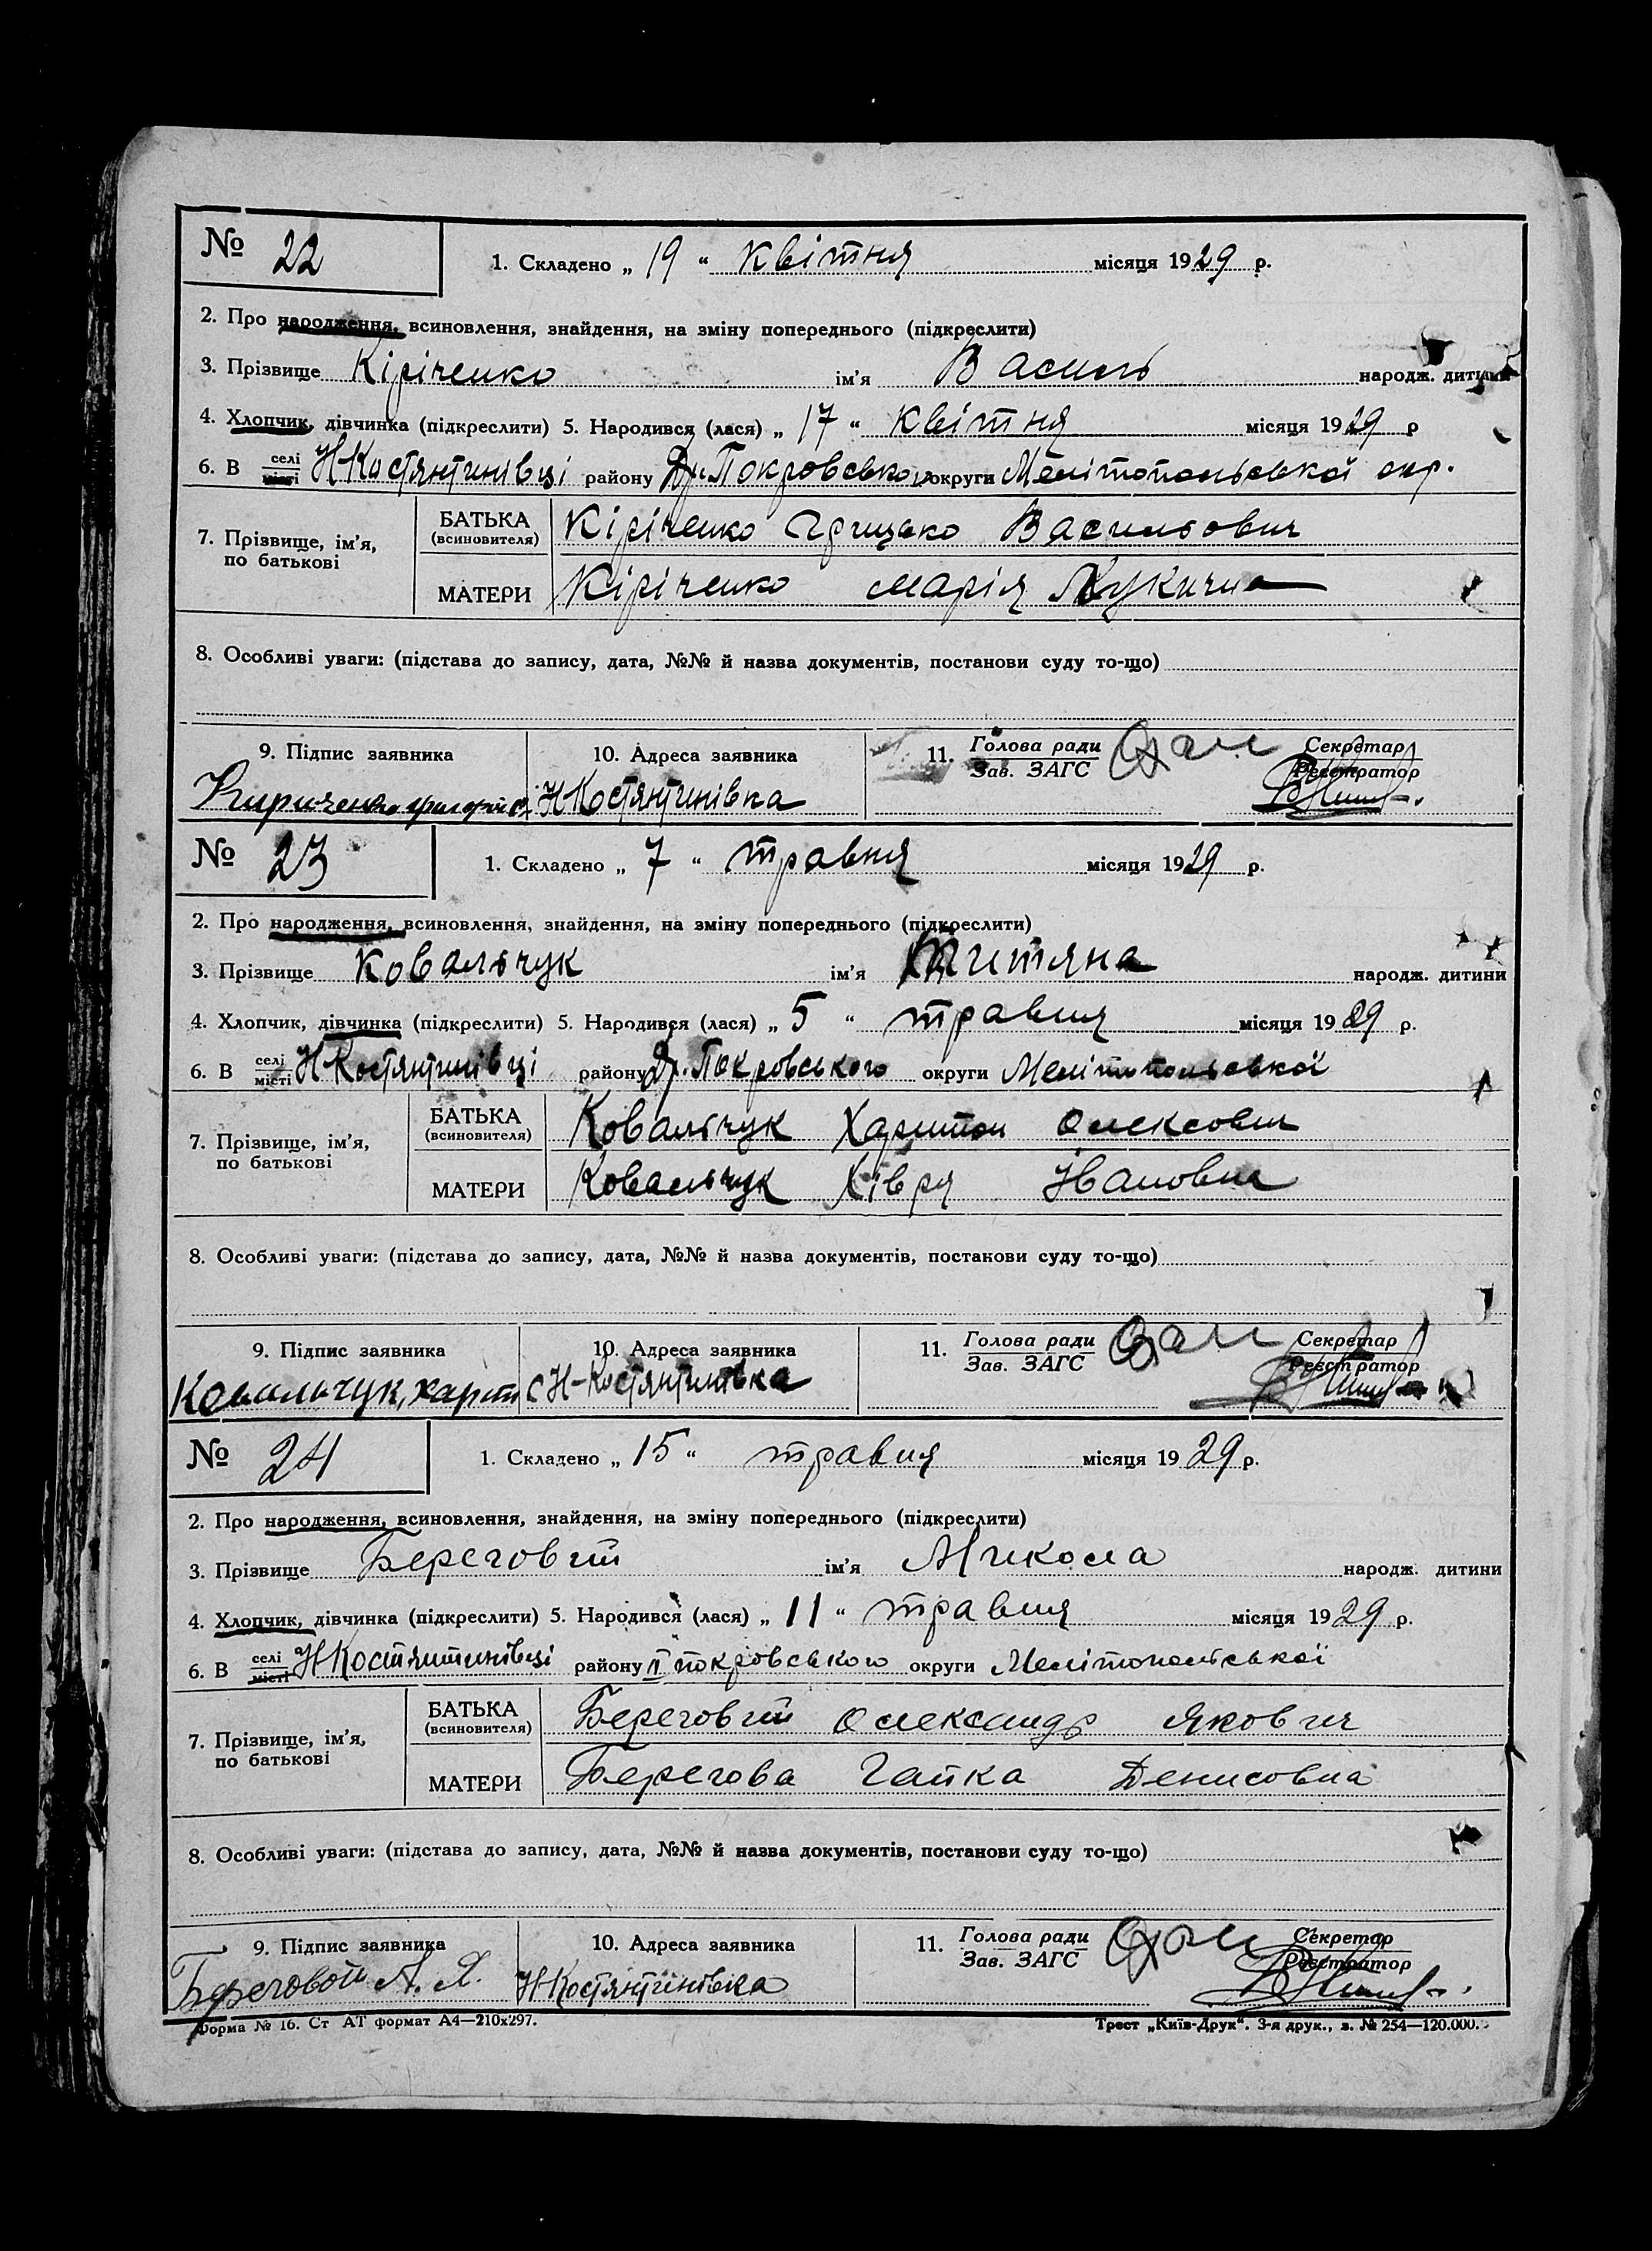 № 22
1. Складено „ 19 “ квітня місяця 1929 р.
2. Про народження, всиновлення, знайдення, на зміну попереднього (підкреслити)
3. Прізвище Кіріченко ім’я Василь народж. дитини
4. Хлопчик, дівчинка (підкреслити) 5. Народився (лася) „ 17 “ квітня місяця 1929 р
6. В селі місті НКостянтинівці району Др.-Покровсько округи Мелітопольської окр.
7. Прізвище, ім’я, по батькові
БАТЬКА (всиновителя) Кіріченко Грицько Васильович
МАТЕРИ Кіріченко Марія Лукична
8. Особливі уваги: (підстава до запису, дата, №№ й назва документів, постанови суду то-що)
9. Підпис заявника 10. Адреса заявника 11. Голова ради Зав. ЗАГС Секретар Реєстратор
Кириченко НКостянтинівка
№ 23
1. Складено „ 7 “ травня місяця 1929 р.
2. Про народження, всиновлення, знайдення, на зміну попереднього (підкреслити)
3. Прізвище Ковальчук ім’я народж. дитини
4. Хлопчик, дівчинка (підкреслити) 5. Народився (лася) „ 5 “ травня місяця 1929 р.
6. В селі місті НКостянтинівці району Др.-Покровського округи Мелітопольської
7. Прізвище, ім’я, по батькові
БАТЬКА (всиновителя) Ковальчук Харитон Олексович
МАТЕРИ Ковальчук Хівря Івановна
8. Особливі уваги: (підстава до запису, дата, №№ й назва документів, постанови суду то-що)
9. Підпис заявника 10. Адреса заявника 11. Голова ради Зав. ЗАГС Секретар Реєстратор
Ковальчук, харит с Н-Костянтинівка
№ 24
1. Складено „ 15 “ травня місяця 1929 р.
2. Про народження, всиновлення, знайдення, на зміну попереднього (підкреслити)
3. Прізвище Береговий ім’я Микола народж. дитини
4. Хлопчик, дівчинка (підкреслити) 5. Народився (лася) „ 11 “ травня місяця 1929 р.
6. В селі місті НКостянтинівці району ІІ покровського округи Мелітопольської
7. Прізвище, ім’я, по батькові
БАТЬКА (всиновителя) Береговий Олександр Якович
МАТЕРИ Берегова Гапка Денисовна
8. Особливі уваги: (підстава до запису, дата, №№ й назва документів, постанови суду то-що)
9. Підпис заявника 10. Адреса заявника 11. Голова ради Зав. ЗАГС Секретар Реєстратор
Береговой А. Я. НКостянтинівка
Форма № 16. Ст АТ формат А4—210х297. Трест „Київ-Друк“. 3-я друк., з. № 254—120.000.